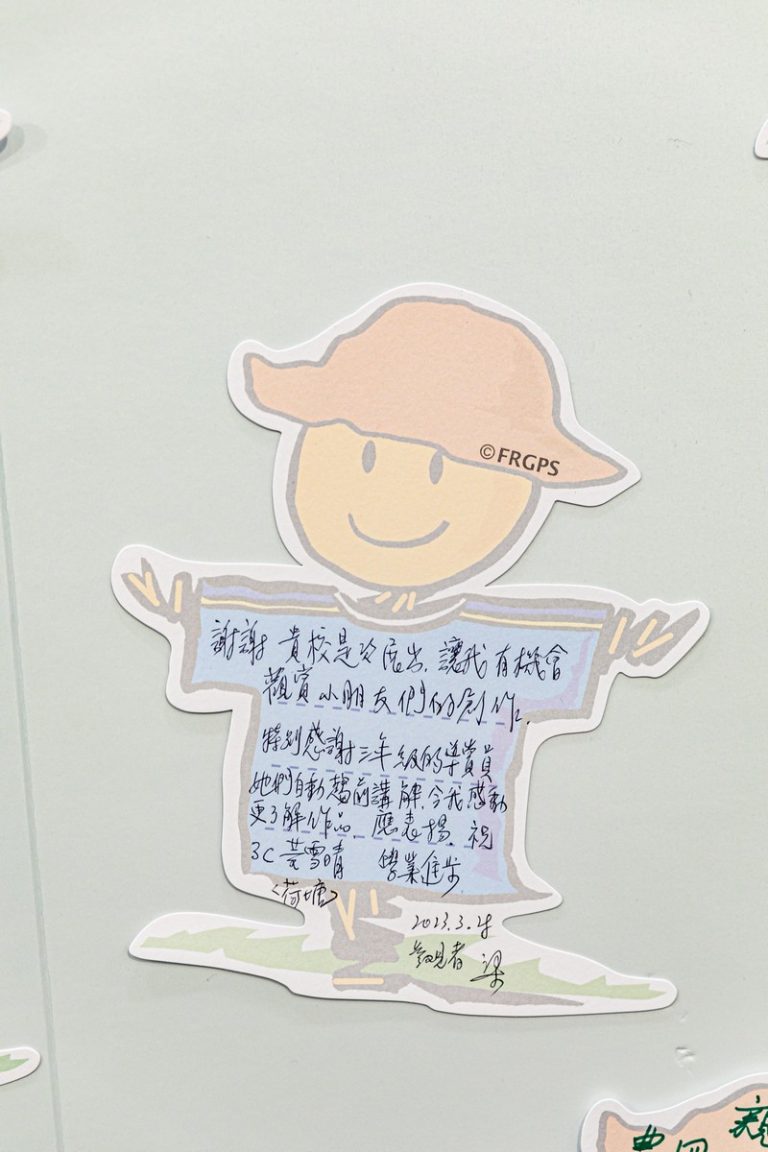 ©FRGPS
謝謝 貴校是次展出，讓我有機會
觀賞小朋友們的創作。
特別感謝三年級的導賞員
她們自動趨前講解，令我感動
更了解作品，應表揚，祝
3C 芸雪晴 學業進步
<荷塘>
2023.3.
參觀者 梁